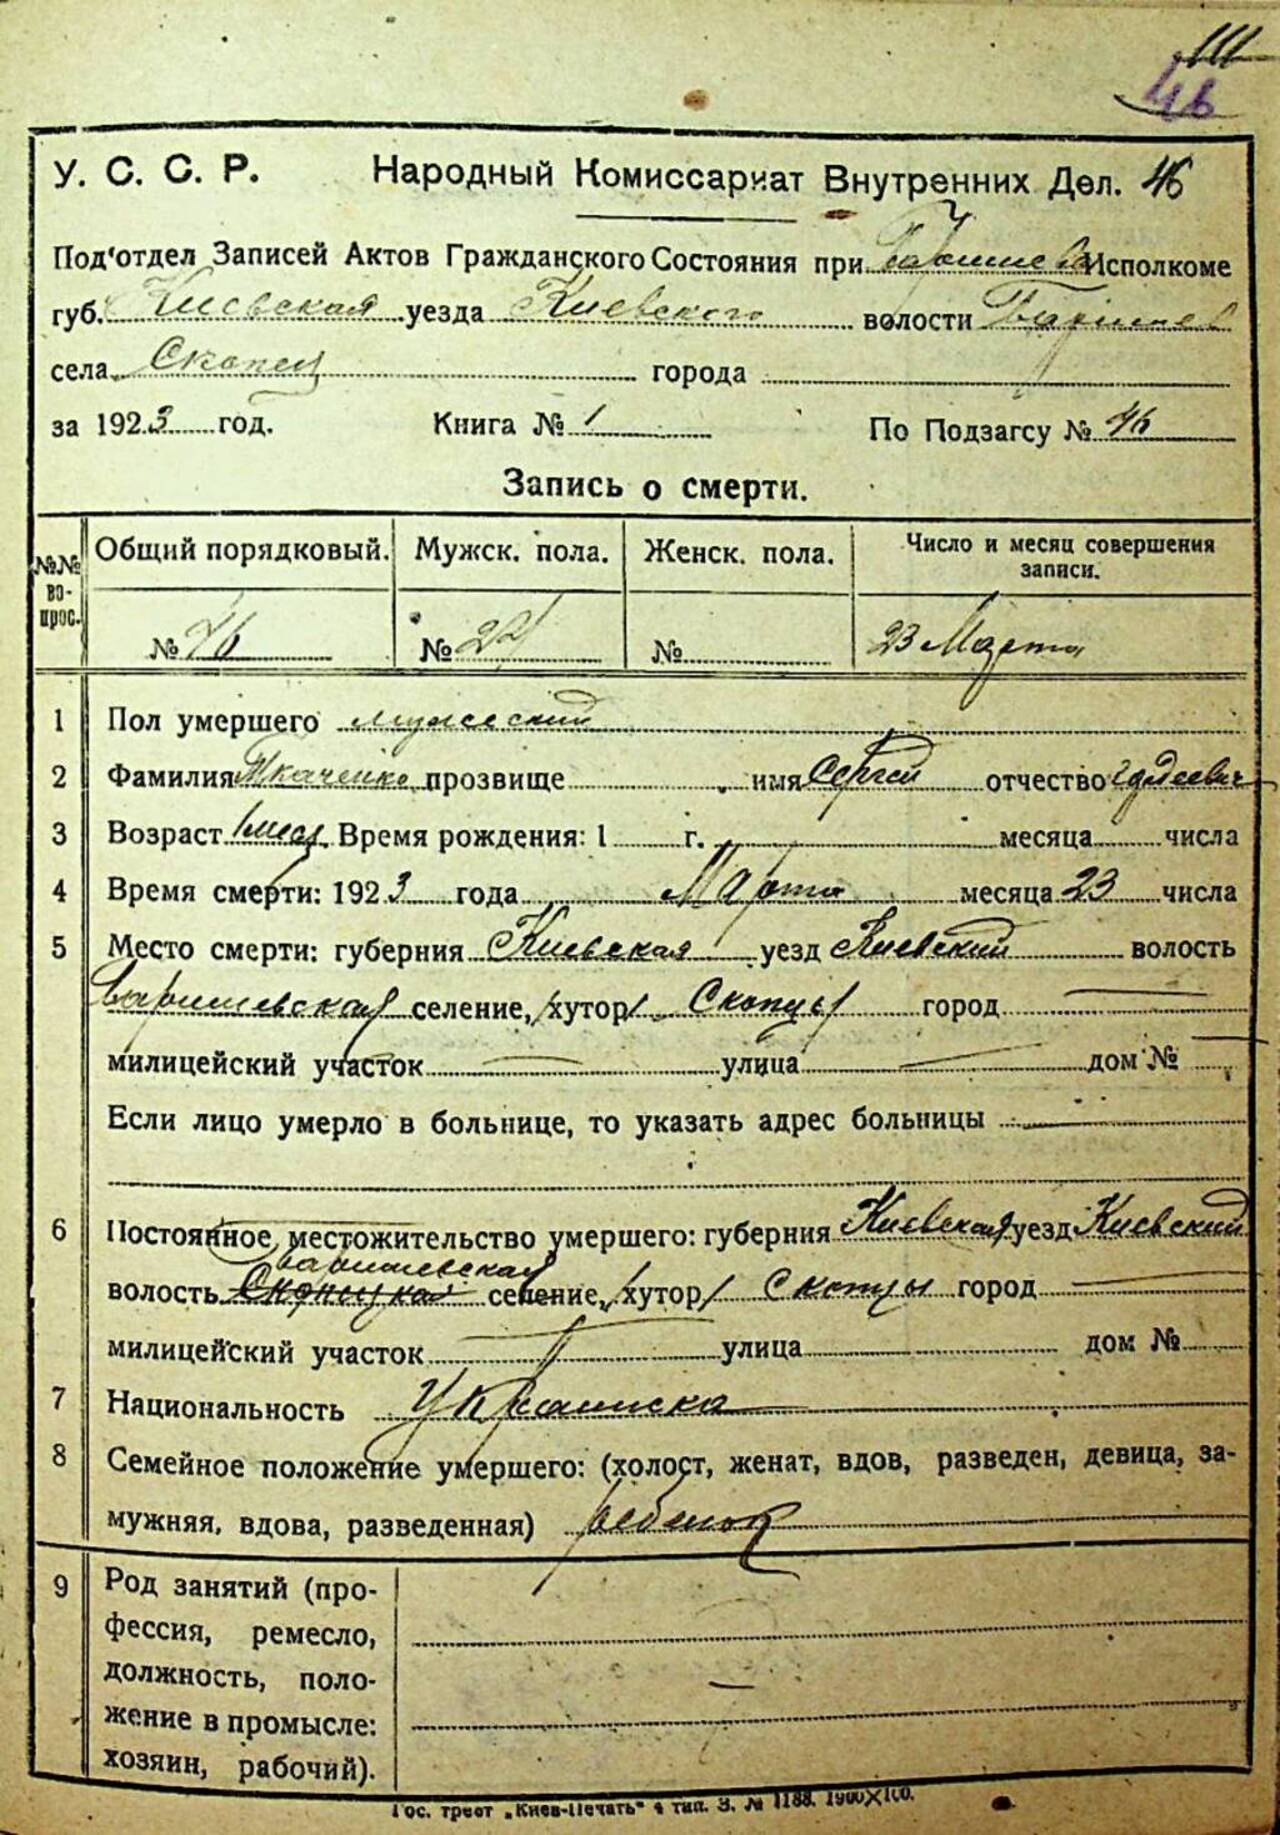 46
У. С. С. Р. Народный Комиссариат Внутренних Дел. 46
Под'отдел Записей Актов Гражданского Состояния при Исполкоме
губ. Киевская уезда Киевского волости Баришев
села Скопцы города
за 1923 год. Книга № 1 По Подзагсу № 46
Запись о смерти.
№№ вопрос. Общий порядковый. Мужск. пола. Женск. пола. Число и месяц совершения записи.
№ 46 № № 23 Марта
1 Пол умершего мужеский
2 Фамилия Ткаченко прозвище имя Сергей отчество
3 Возраст 1 мес. Время рождения: 1 г. месяца числа
4 Время смерти: 1923 года Марта месяца 23 числа
5 Место смерти: губерния Киевская уезд Киевский волость
Баришевская селение, /хутор/ Скопцы город —
милицейский участок — улица — дом № —
Если лицо умерло в больнице, то указать адрес больницы —
6 Постоянное местожительство умершего: губерния Киевская уезд Киевский
Баришевская
волость Скопцкая селение, /хутор/ Скопцы город —
милицейский участок — улица дом №
7 Национальность Украинска
8 Семейное положение умершего: (холост, женат, вдов, разведен, девица, за-
мужняя, вдова, разведенная) ребенок
9 Род занятий (про-
фессия, ремесло,
должность, поло- —
жение в промысле:
хозяин, рабочий).
Гос. трест „Киев-Печать" 4 тип. З. № 1188. 1900×100.